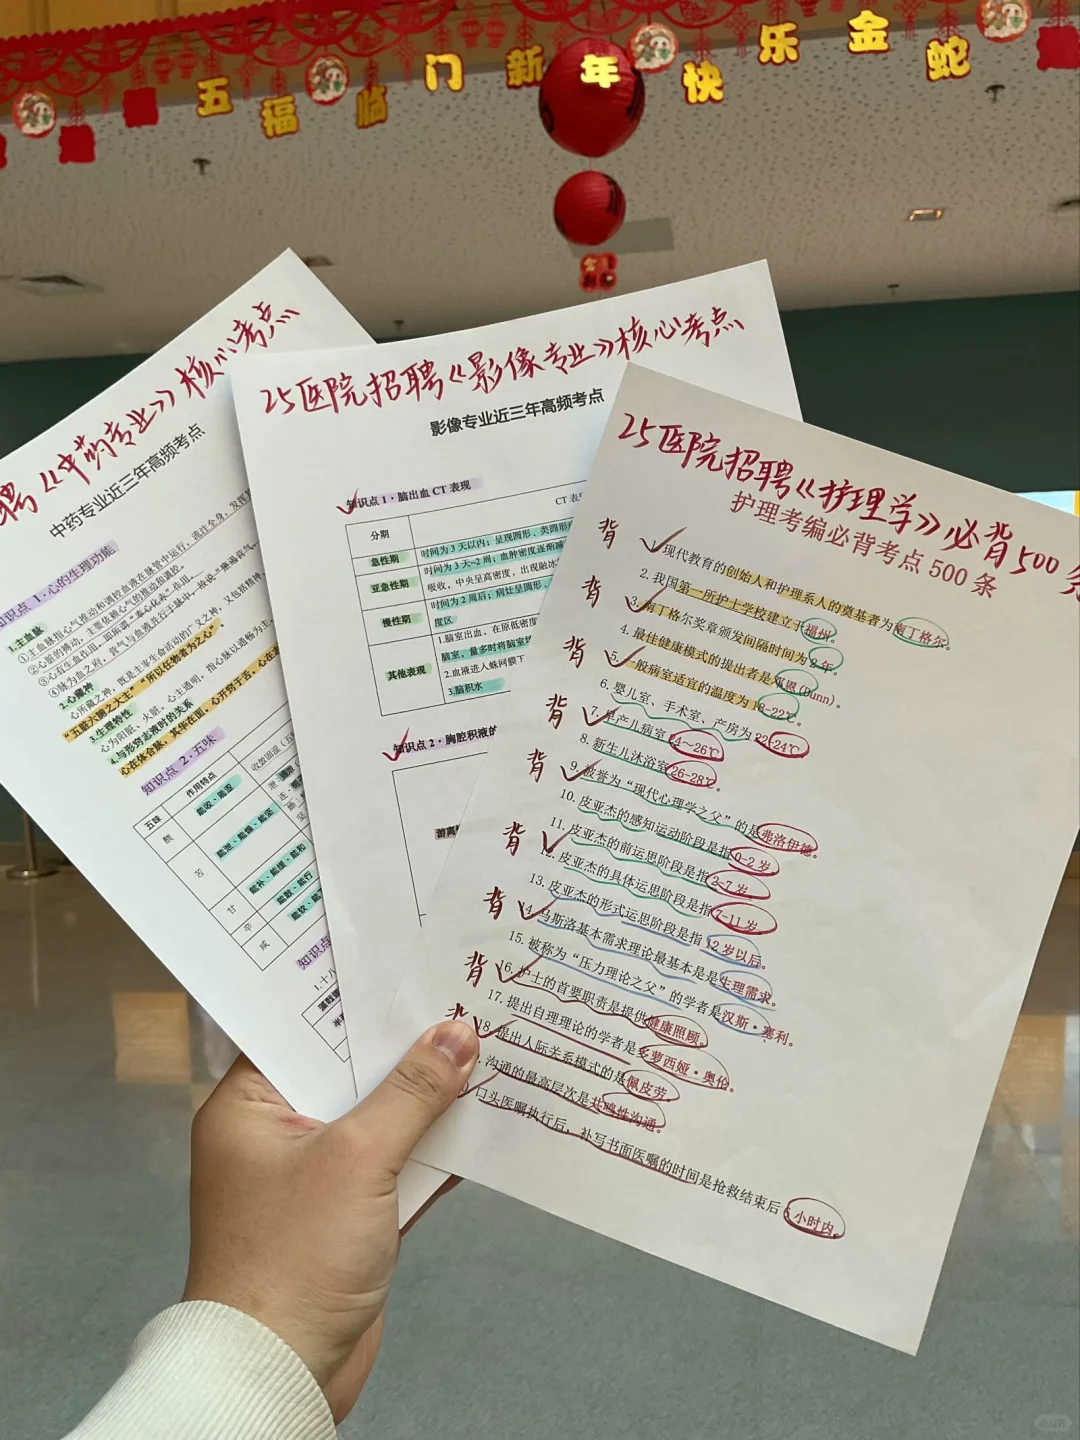 五福临门 新年快乐 金蛇
聘《中药专业》核心考点
中药专业近三年高频考点
知识点 1·心的生理功能
1.主血脉
①主血脉指心气推动和调控血液在脉管中运行，流注全身，发挥
②心脏的搏动，主要依赖心气的推动和调控。
③心有生血作用，即所谓“奉心化赤”作用。
2.心藏神
心所藏之神，既是主宰生命活动的广义之神，又包括精神、
“五脏六腑之大主”“所以任物者为之心”
3.生理特性
心为阳脏、火脏、心主通明，指心脉以通畅为主，
4.与形窍志液时的关系
心在体合脉，其华在面，心开窍于舌，心在
知识点 2·五味
五味
作用特点
酸
能收·能涩
苦
能泄·能燥·能坚
甘
能补·能缓·能和
辛
能散·能行
咸
知识点
25医院招聘《影像专业》核心考点
影像专业近三年高频考点
知识点 1·脑出血 CT 表现
分期
急性期
时间为 3 天以内；呈现圆形、类圆形
亚急性期
时间为 3 天~2 周；血肿密度逐渐减
吸收，中央呈高密度，出现融冰
慢性期
时间为 2 周后；病灶呈圆形、
度区
其他表现
1.脑室出血，在原低密度
脑室，量多时将脑室
2.血液进入蛛网膜下
3.脑积水
知识点 2·胸腔积液的
25医院招聘《护理学》必背500条
护理考编必背考点 500 条
背
1.现代教育的创始人和护理系人的奠基者为南丁格尔。
2. 我国第一所护士学校建立于福州。
背
3.南丁格尔奖章颁发间隔时间为 2 年
4. 最佳健康模式的提出者是邓恩(Dunn)。
背
5. 一般病室适宜的温度为 18~22℃
6. 婴儿室、手术室、产房为 22~24℃
背
7. 早产儿病室 24~26℃
8. 新生儿沐浴室 26~28℃。
背
9. 被誉为“现代心理学之父”的是弗洛伊德。
10. 皮亚杰的感知运动阶段是指 0-2 岁
11. 皮亚杰的前运思阶段是指 2-7 岁
背
12. 皮亚杰的具体运思阶段是指 7-11 岁
13. 皮亚杰的形式运思阶段是指 12 岁以后。
背
14. 马斯洛基本需求理论最基本是是生理需求。
15. 被称为“压力理论之父”的学者是汉斯·塞利。
背
16. 护士的首要职责是提供健康照顾。
17. 提出自理理论的学者是多萝西娅·奥伦。
背
18. 提出人际关系模式的是佩皮劳。
沟通的最高层次是共鸣性沟通。
口头医嘱执行后，补写书面医嘱的时间是抢救结束后 小时内。